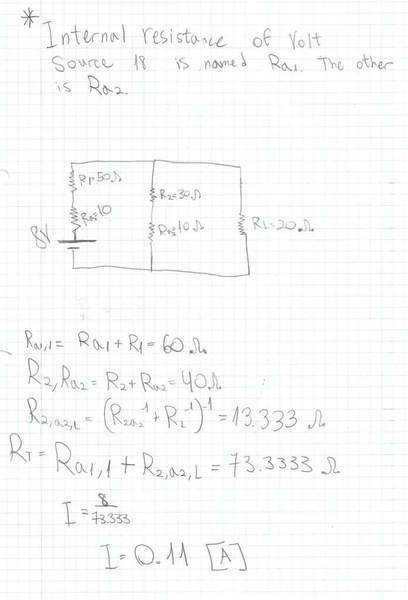 * Internal resistance of Volt
Source 18 is named Ra1. The other
is Ra2.
R1=50Ω
R2=30Ω
10
10Ω
RL=20Ω
8V
Ra1,1 = Ra1 + R1 = 60 Ω
R2,Ra2 = R2 + Ra2 = 40Ω
R2,a2,L = (R2a2^-1 + RL^-1)^-1 = 13.333 Ω
RT = Ra1,1 + R2,a2,L = 73.3333 Ω
I = 8/73.333
I = 0.11 [A]